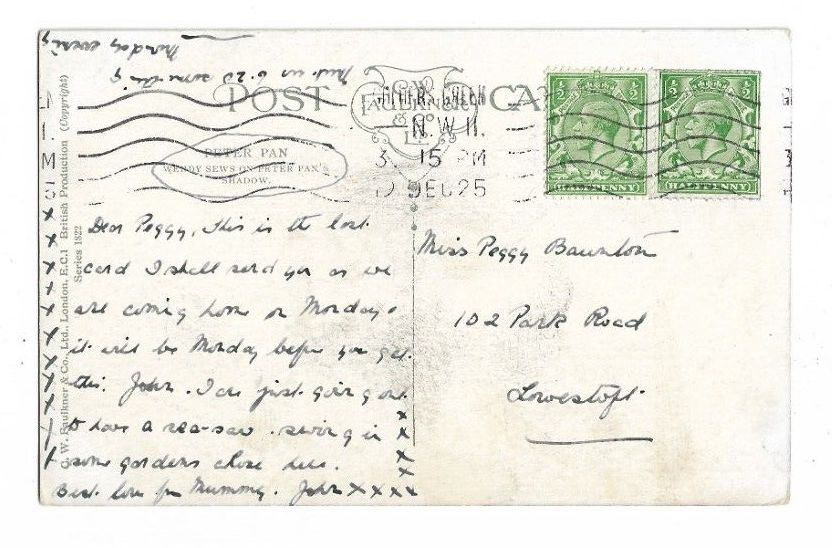 Monday evening
POST CARD
C.W. FAULKNER & Co LTD
GOLDERS GREEN
N.W.11.
3 15 PM
12 DEC 25
HALFPENNY
HALFPENNY
PETER PAN
WENDY SEWS ON PETER PAN'S
SHADOW.
C. W. Faulkner & Co., Ltd., London, E.C.1 British Production (Copyright)
Series 1822
Dear Peggy, This is the last
card I shall send you as we
are coming home on Monday.
it will be Monday before you get
this. John. I are just going out
to have a sea-saw. swing in
some gardens close here.
Best love fr Mummy. John x x x x
Miss Peggy Baunton
102 Park Road
Lowestoft